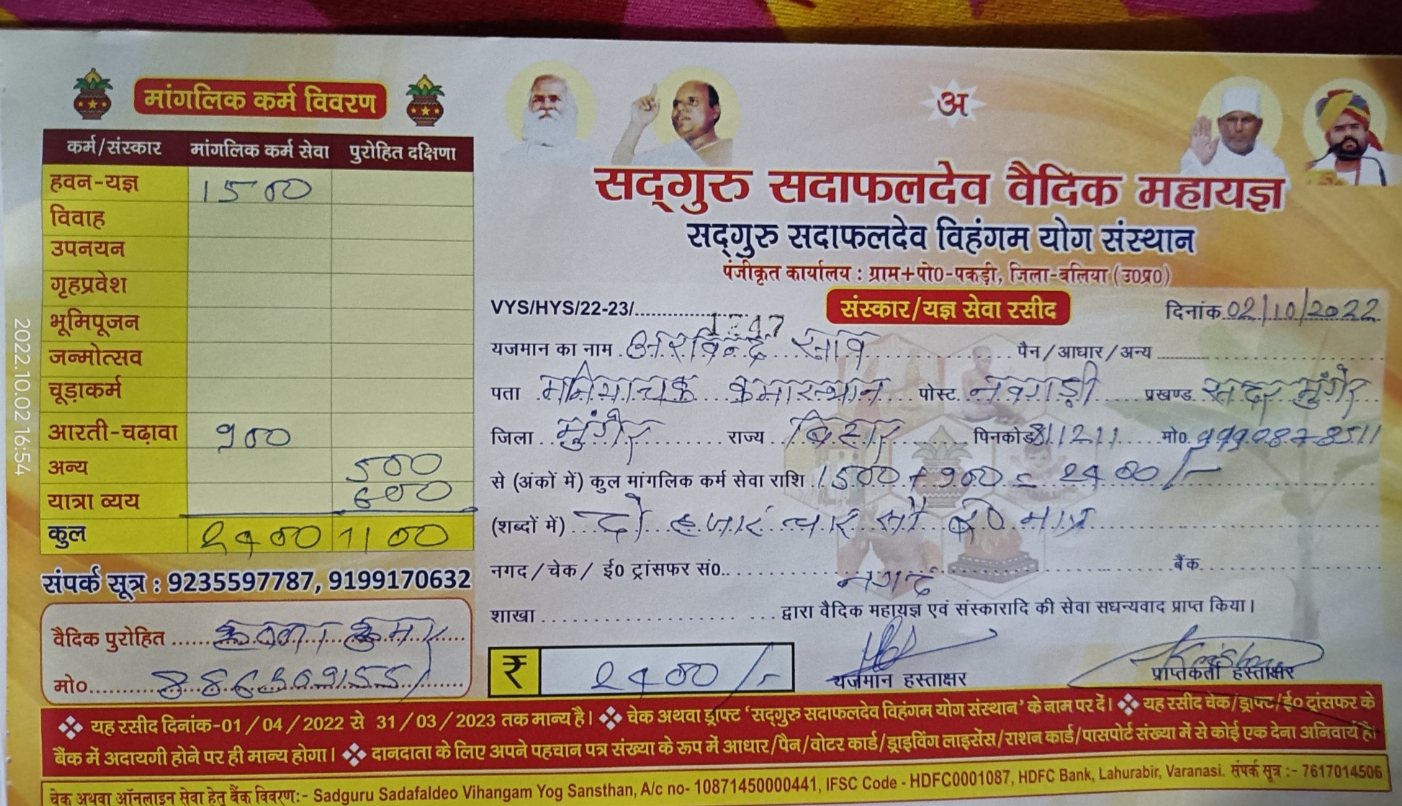 मांगलिक कर्म विवरण
कर्म/संस्कार मांगलिक कर्म सेवा पुरोहित दक्षिणा
हवन-यज्ञ 1500
विवाह
उपनयन
गृहप्रवेश
भूमिपूजन
जन्मोत्सव
चूड़ाकर्म
आरती-चढ़ावा 900
अन्य 500
यात्रा व्यय 600
कुल 2400 1100
संपर्क सूत्र : 9235597787, 9199170632
वैदिक पुरोहित ...... कुमार
मो०
अ
सद्गुरु सदाफलदेव वैदिक महायज्ञ
सद्गुरु सदाफलदेव विहंगम योग संस्थान
पंजीकृत कार्यालय : ग्राम+पो0-पकड़ी, जिला-बलिया (उ0प्र0)
VYS/HYS/22-23/ संस्कार/यज्ञ सेवा रसीद दिनांक 02/10/2022
यजमान का नाम अरविन्द साव पैन/आधार/अन्य
पता पोस्ट नवगड़ी प्रखण्ड सदर मुंगेर
जिला मुंगेर राज्य बिहार पिनकोड 811211 मो०
से (अंकों में) कुल मांगलिक कर्म सेवा राशि 1500 + 900 = 2400/-
(शब्दों में) दो हजार चार सौ रु० मात्र
नगद/चेक/ई० ट्रांसफर सं०.. नगद बैंक
शाखा द्वारा वैदिक महायज्ञ एवं संस्कारादि की सेवा सधन्यवाद प्राप्त किया।
₹ 2400/- यजमान हस्ताक्षर प्राप्तिकर्ता हस्ताक्षर
❖ यह रसीद दिनांक-01/04/2022 से 31/03/2023 तक मान्य है। ❖ चेक अथवा ड्राफ्ट 'सद्गुरु सदाफलदेव विहंगम योग संस्थान' के नाम पर दें। ❖ यह रसीद चेक/ड्राफ्ट/ई० ट्रांसफर के
बैंक में अदायगी होने पर ही मान्य होगा। ❖ दानदाता के लिए अपने पहचान पत्र संख्या के रूप में आधार/पैन/वोटर कार्ड/ड्राइविंग लाइसेंस/राशन कार्ड/पासपोर्ट संख्या में से कोई एक देना अनिवार्य है।
चेक अथवा ऑनलाइन सेवा हेतु बैंक विवरण:- Sadguru Sadafaldeo Vihangam Yog Sansthan, A/c no- 10871450000441, IFSC Code - HDFC0001087, HDFC Bank, Lahurabir, Varanasi. संपर्क सूत्र :- 7617014506
2022.10.02 16:54